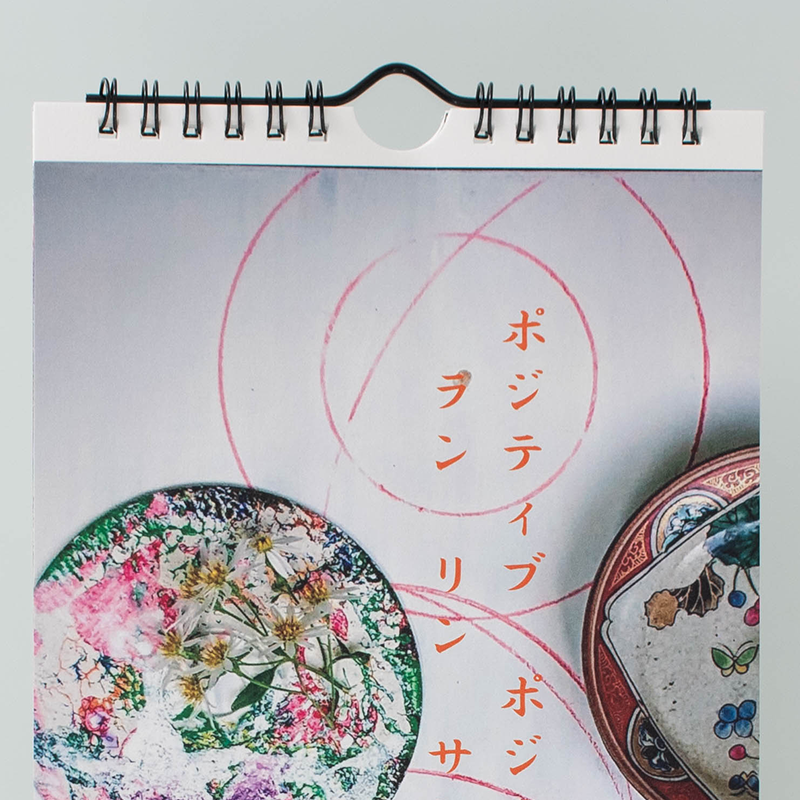 ポジティブ ポジ
ヲン リン サ